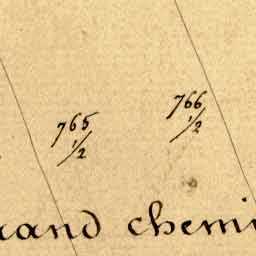 765 1/2
766 1/2
rand chemi